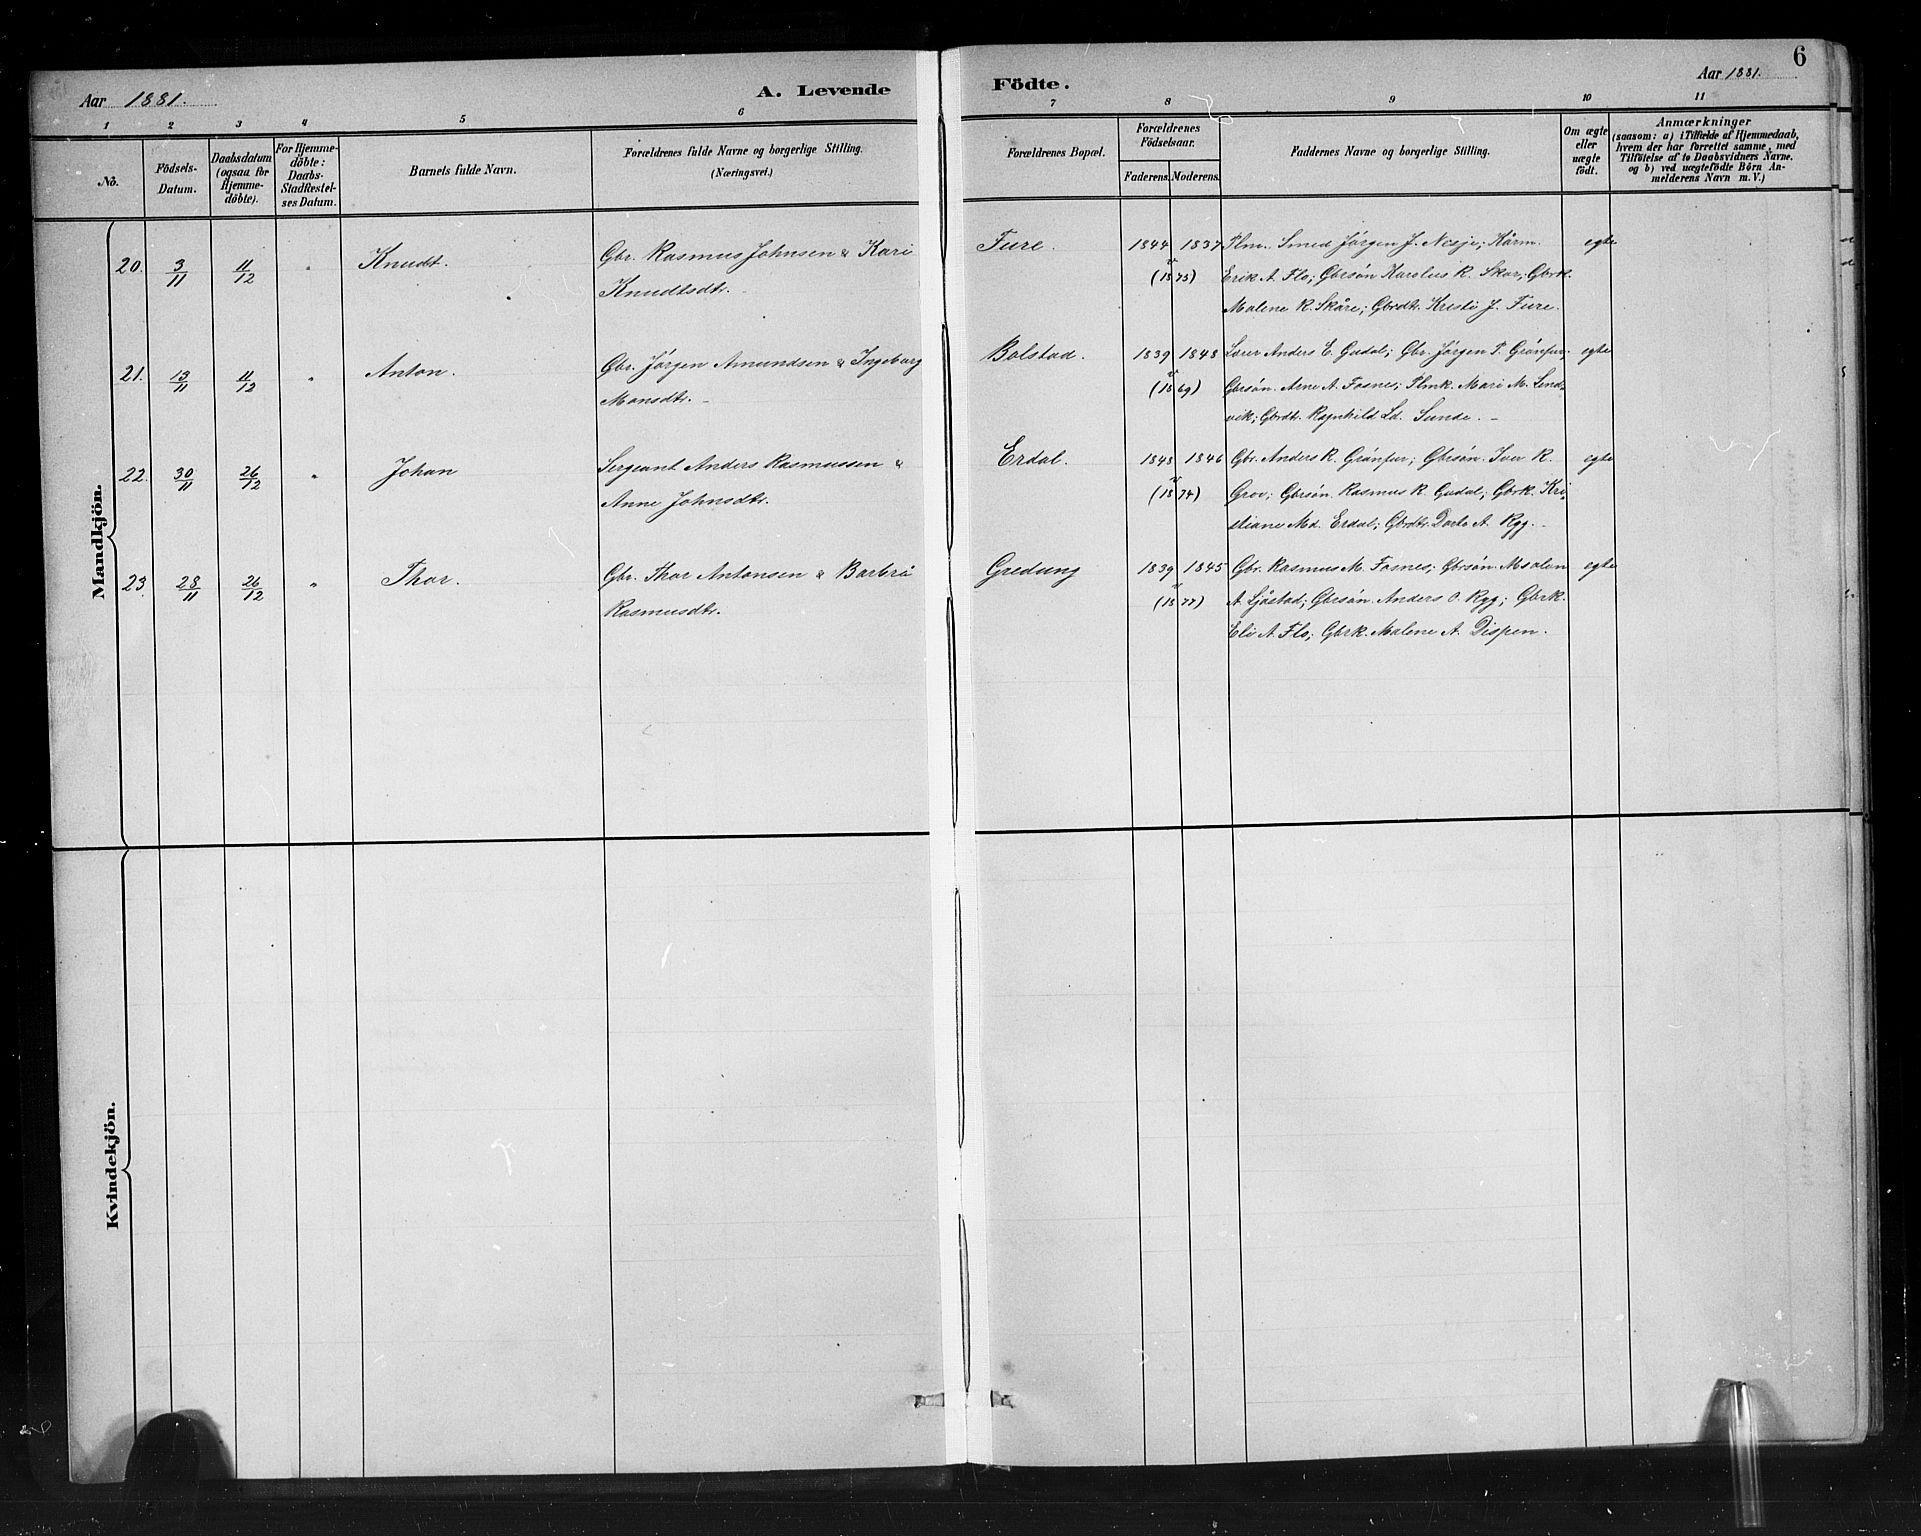 6
Aar 1881.
A. Levende Födte.
Aar 1881.
1 2 3 4 5 6 7 8 9 10 11
No.
Födsels-
Datum.
Daabsdatum
(ogsaa for
Hjemme-
döbte).
For Hjemme-
döbte:
Daabs-
Stadfæstel-
ses Datum.
Barnets fulde Navn.
Forældrenes fulde Navne og borgerlige Stilling.
(Næringsvei.)
Forældrenes Bopæl.
Forældrenes
Födselsaar.
Faderens. Moderens.
Faddernes Navne og borgerlige Stilling.
Om ægte
eller
uægte
födt.
Anmærkninger
(saasom: a) i Tilfælde af Hjemmedaab,
hvem der har forrettet samme, med
Tilföielse af to Daabsvidners Navne.
og b) ved uægtefödte Börn An-
melderens Navn m. V.)
Mandkjön.
20. 3/11 11/12 " Knudt. Gbr. Rasmus Johnsen & Kari Fure. 1844 1837 Plm. Smed Jørgen J. Nesje; Kårm. egte
Knudtsdtr. (1875) Erik A. Flo; Gbrsøn Karolus R. Skar; Gbrk.
Malene R. Skåre; Gbrdt. Kristi J. Fure.
21. 13/11 11/12 " Anton. Gbr. Jørgen Amundsen & Ingeborg Bolstad. 1839 1848 Lærer Anders E. Gudal; Gbr. Jørgen P. Grønfur; egte
Monsdtr. (1869) Gbrsøn. Arne A. Fosnes; Plmk. Mari M. Lend-
vik; Gbrdt. Ragnhild Ld. Sunde.
22. 30/11 26/12 " Johan Sergeant Anders Rasmussen & Erdal. 1848 1846 Gbr. Anders R. Grønfur; Gbrsøn. Iver R. egte
Anne Johnsdtr. (1874) Grov; Gbrsøn. Rasmus R. Gudal; Gbrk. Kri-
stiane Md. Erdal; Gbrdtr. Dorte A. Ryg.
23. 28/11 26/12 " Thor. Gbr. Thor Antonsen & Barbra Gredung 1839 1845 Gbr. Rasmus M. Fosnes; Gbrsøn. Absalon egte
Rasmusdtr. (1877) A. Ljøstad; Gbrsøn. Anders O. Ryg; Gbrk.
Eli A. Flo; Gbrk. Malene A. Dispen.
Kvindekjön.